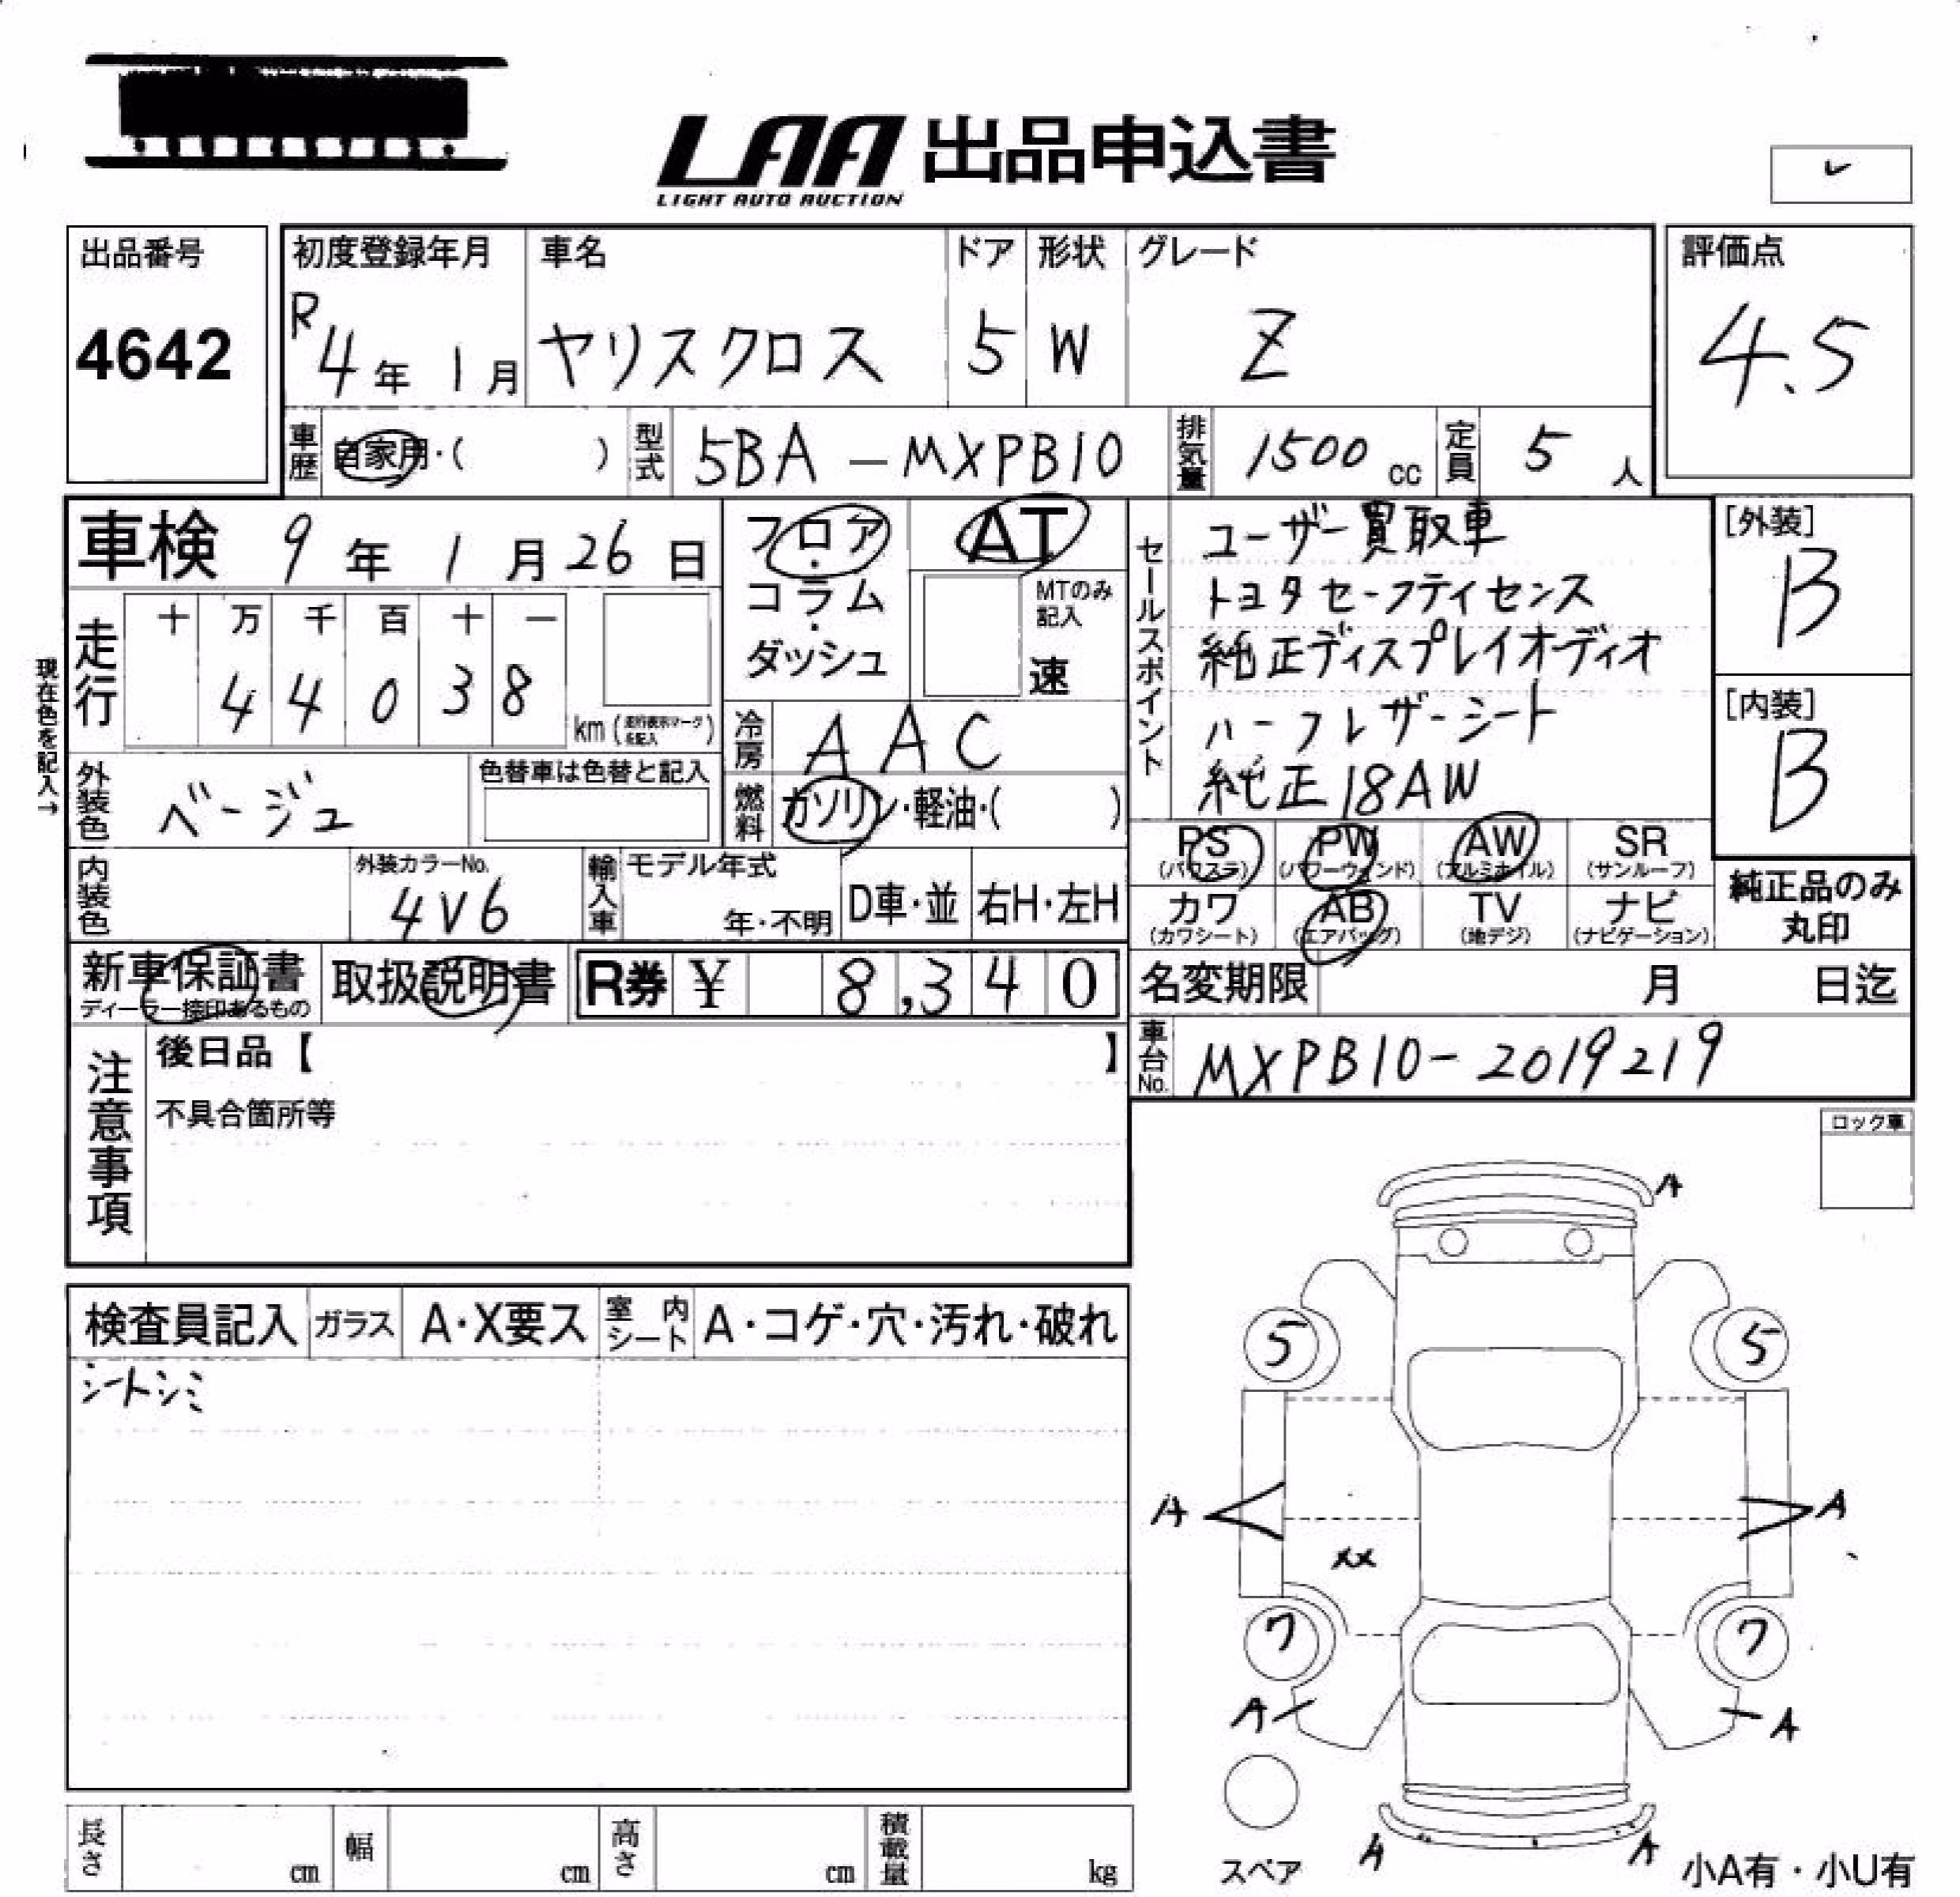 LAA 出品申込書
LIGHT AUTO AUCTION
出品番号
4642
初度登録年月
R4年1月
車名
ヤリスクロス
ドア
5
形状
W
グレード
Z
評価点
4.5
車歴
自家用・( )
型式
5BA-MXPB10
排気量
1500cc
定員
5人
車検 9年1月26日
フロア・コラム・ダッシュ
AT
MTのみ記入
速
セールスポイント
ユーザー買取車
トヨタセーフティセンス
純正ディスプレイオーディオ
ハーフレザーシート
純正18AW
[外装]
B
[内装]
B
現在色を記入→
走行
十 万 千 百 十 一
4 4 0 3 8
km(走行表示マークを記入)
冷房
AAC
外装色
ベージュ
色替車は色替と記入
燃料
ガソリン・軽油・( )
PS (パワステ)
PW (パワーウィンド)
AW (アルミホイル)
SR (サンルーフ)
カワ (カワシート)
AB (エアバッグ)
TV (地デジ)
ナビ (ナビゲーション)
純正品のみ
丸印
内装色
外装カラーNo.
4V6
輸入車
モデル年式
年・不明
D車・並
右H・左H
新車保証書
ディーラー捺印あるもの
取扱説明書
R券 ¥ 8,340
名変期限 月 日迄
車台No.
MXPB10-2019219
注意事項
後日品【 】
不具合箇所等
ロック車
検査員記入
ガラス
A・X要ス
室内シート
A・コゲ・穴・汚れ・破れ
シートシミ
A
5 5
A A
XX
7 7
A A
A A
スペア
小A有・小U有
長さ cm
幅 cm
高さ cm
積載量 kg